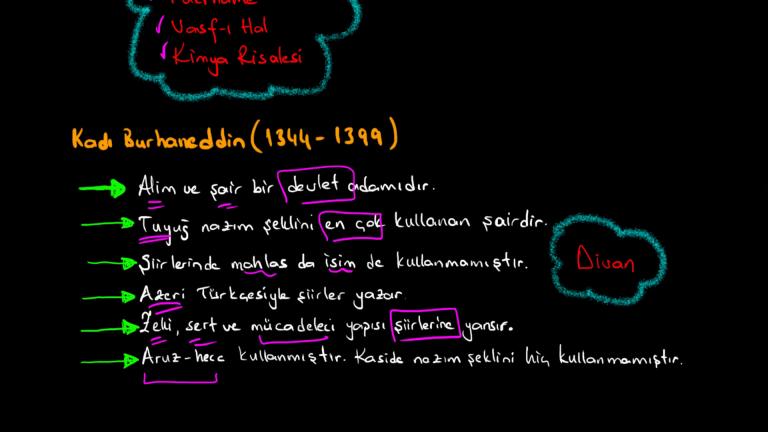 Vasf-ı Hal
Kimya Risalesi
Kadı Burhaneddin (1344-1399)
Alim ve şair bir devlet adamıdır.
Tuyuğ nazım şeklini en çok kullanan şairdir.
Şiirlerinde mahlas da isim de kullanmamıştır.
Divan
Azeri Türkçesiyle şiirler yazar
Zeki, sert ve mücadeleci yapısı şiirlerine yansır.
Aruz-hece kullanmıştır. Kaside nazım şeklini hiç kullanmamıştır.